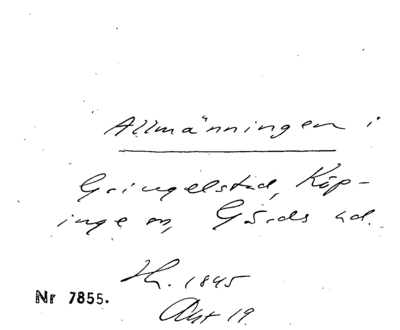 Allmänningen i
Gringelstad, Köp-
inge sn, Gärds hd.
1845
Nr 7855.
Akt 19